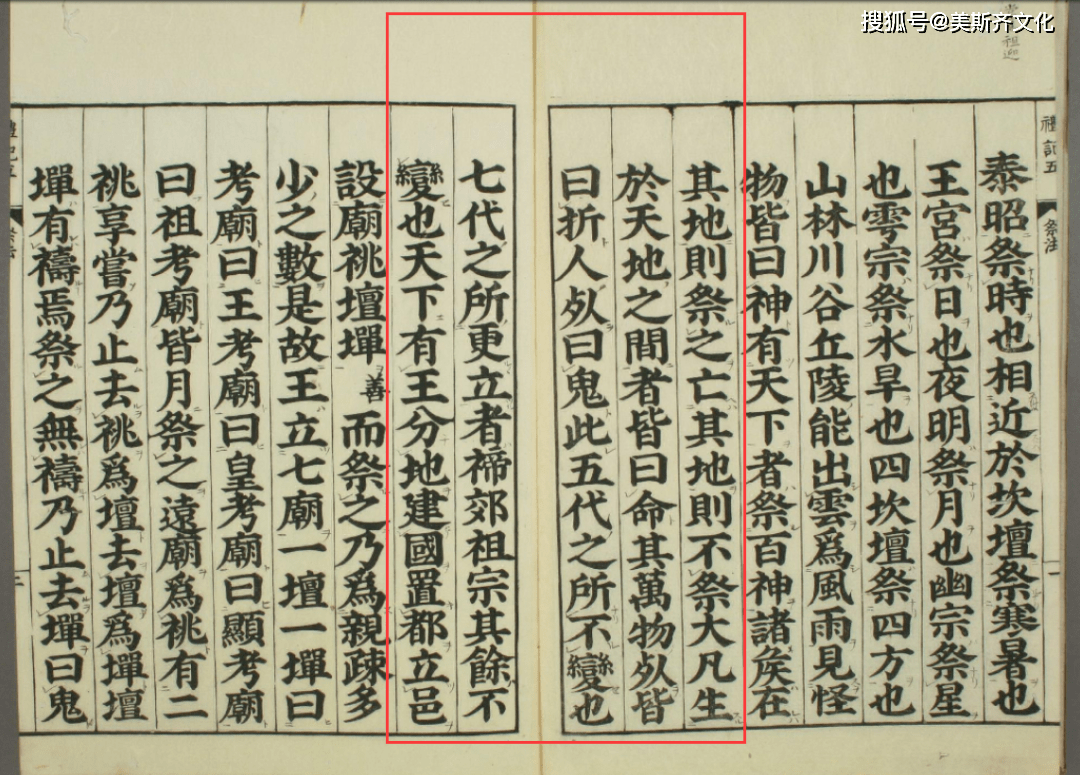 搜狐号@美斯齐文化
禮記五
祭法
一
泰昭祭時也相近於坎壇祭寒暑也
王宮祭日也夜明祭月也幽宗祭星
也雩宗祭水旱也四坎壇祭四方也
山林川谷丘陵能出雲爲風雨見怪
物皆曰神有天下者祭百神諸矦在
其地則祭之亡其地則不祭大凡生
於天地之間者皆曰命其萬物㱔皆
曰折人㱔曰鬼此五代之所不變也
七代之所更立者禘郊祖宗其餘不
變也天下有王分地建國置都立邑
設廟祧壇墠善而祭之乃爲親疎多
少之數是故王立七廟一壇一墠曰
考廟曰王考廟曰皇考廟曰顯考廟
曰祖考廟皆月祭之遠廟爲祧有二
祧享嘗乃止去祧爲壇去壇爲墠壇
墠有禱焉祭之無禱乃止去墠曰鬼